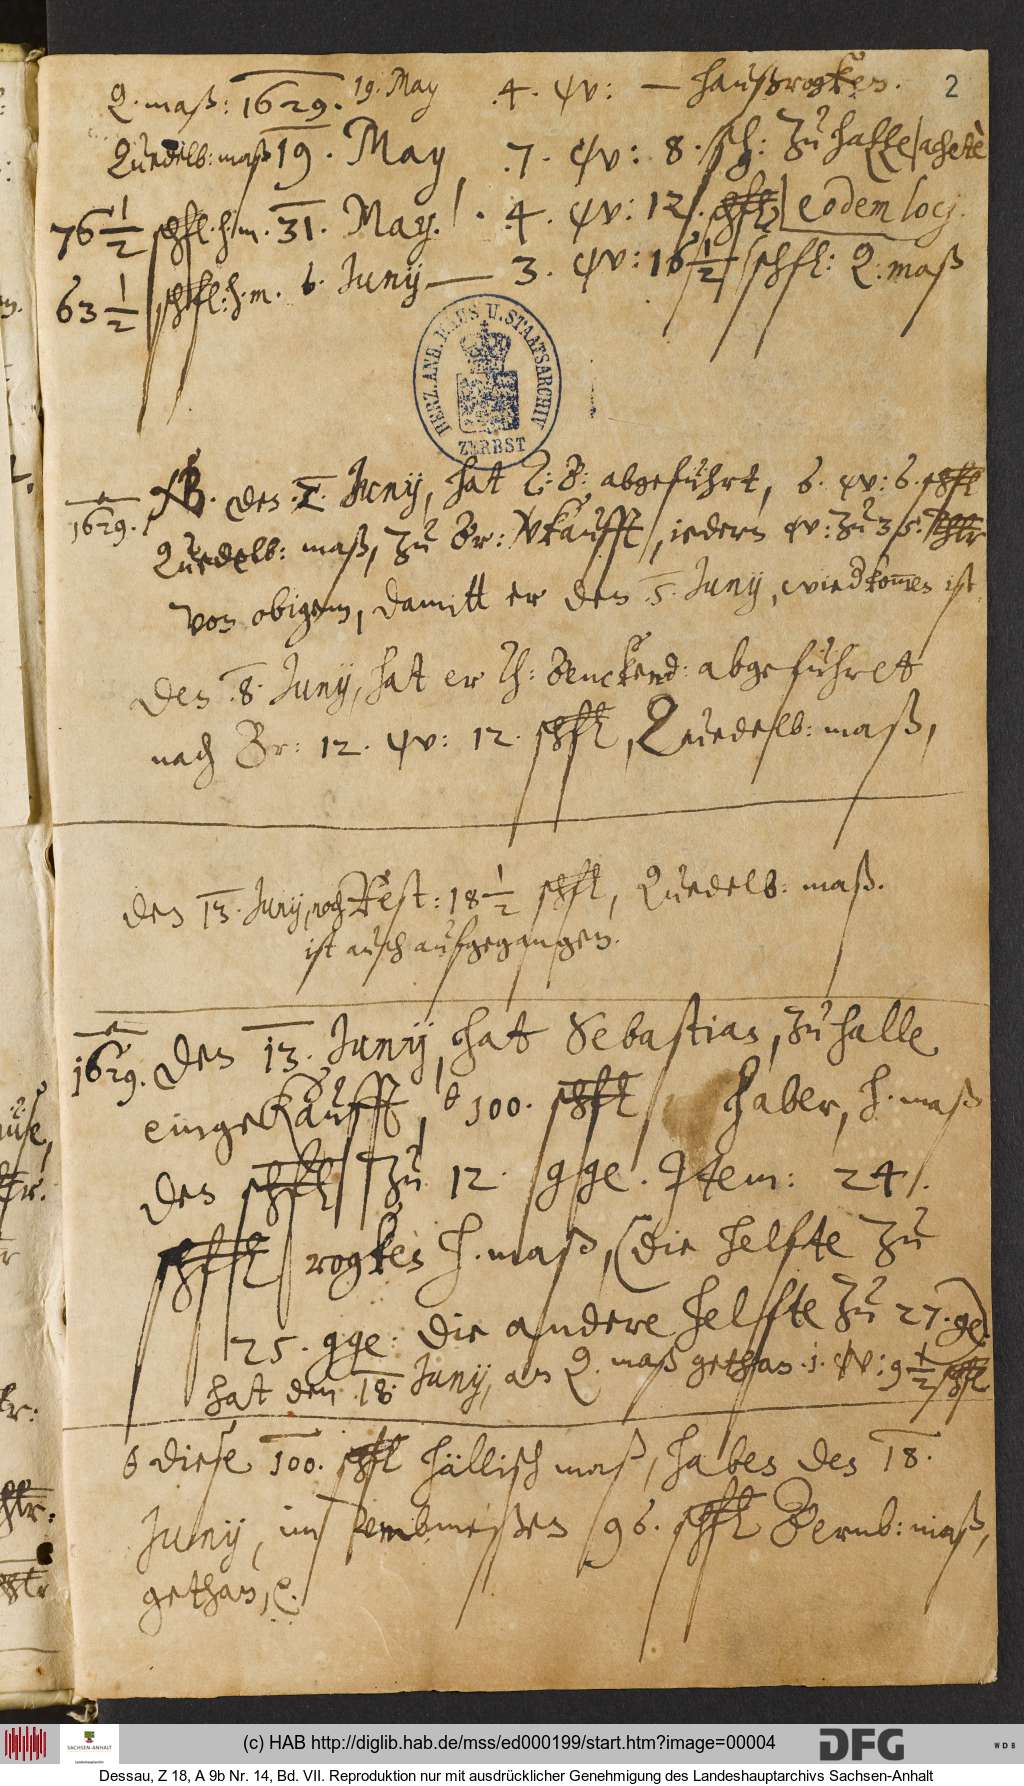 2
Q. maß: 1629. 19. May 4. qv: — haußrogken.
Quedelb: maß 19. May, 7. qv: 8. sch: zu halle
76 1/2 schfl. h. m. 31. May. 4. qv: 12. schfl eodem locj.
63 1/2 schfl: h. m. 6. Junij — 3. qv: 16 1/2 schfl: Q. maß
HERZ. ANH. HAUS U. STAATSARCHIV
ZERBST
1629. NB. den Junij, hat abgeführt, 6. qv: 6. schfl
Quedelb: maß, zu Br: Vkaufft, iedern qv: zu 35. thlr
von obigem, damitt er den 5. Junij, wiedkommen ist.
den 8. Junij, hat er Th: Benckend: abgeführet
nach Br: 12. qv: 12. schfl, Quedelb: maß,
den 13. Junij, noch Rest: 18 1/2 schfl, Quedelb: maß.
ist auch aufgegangen.
1629. den 13. Junij, hat Sebastian, zu halle
eingekaufft, 100. schfl haber, h. maß
den schfl zu 12. gge. Item: 24.
schfl rogken h. maß, (die helfte zu
25. gge: die andere helffte zu 27. ge)
hat den 18. Junij, an Q. maß gethan 1. qv: 9 1/2 schfl
diese 100. schfl hällisch maß, haben den 18.
Junij, im 96. schfl Bernb: maß,
gethan,
(c) HAB http://diglib.hab.de/mss/ed000199/start.htm?image=00004
SACHSEN-ANHALT
DFG
WDB
Dessau, Z 18, A 9b Nr. 14, Bd. VII. Reproduktion nur mit ausdrücklicher Genehmigung des Landeshauptarchivs Sachsen-Anhalt